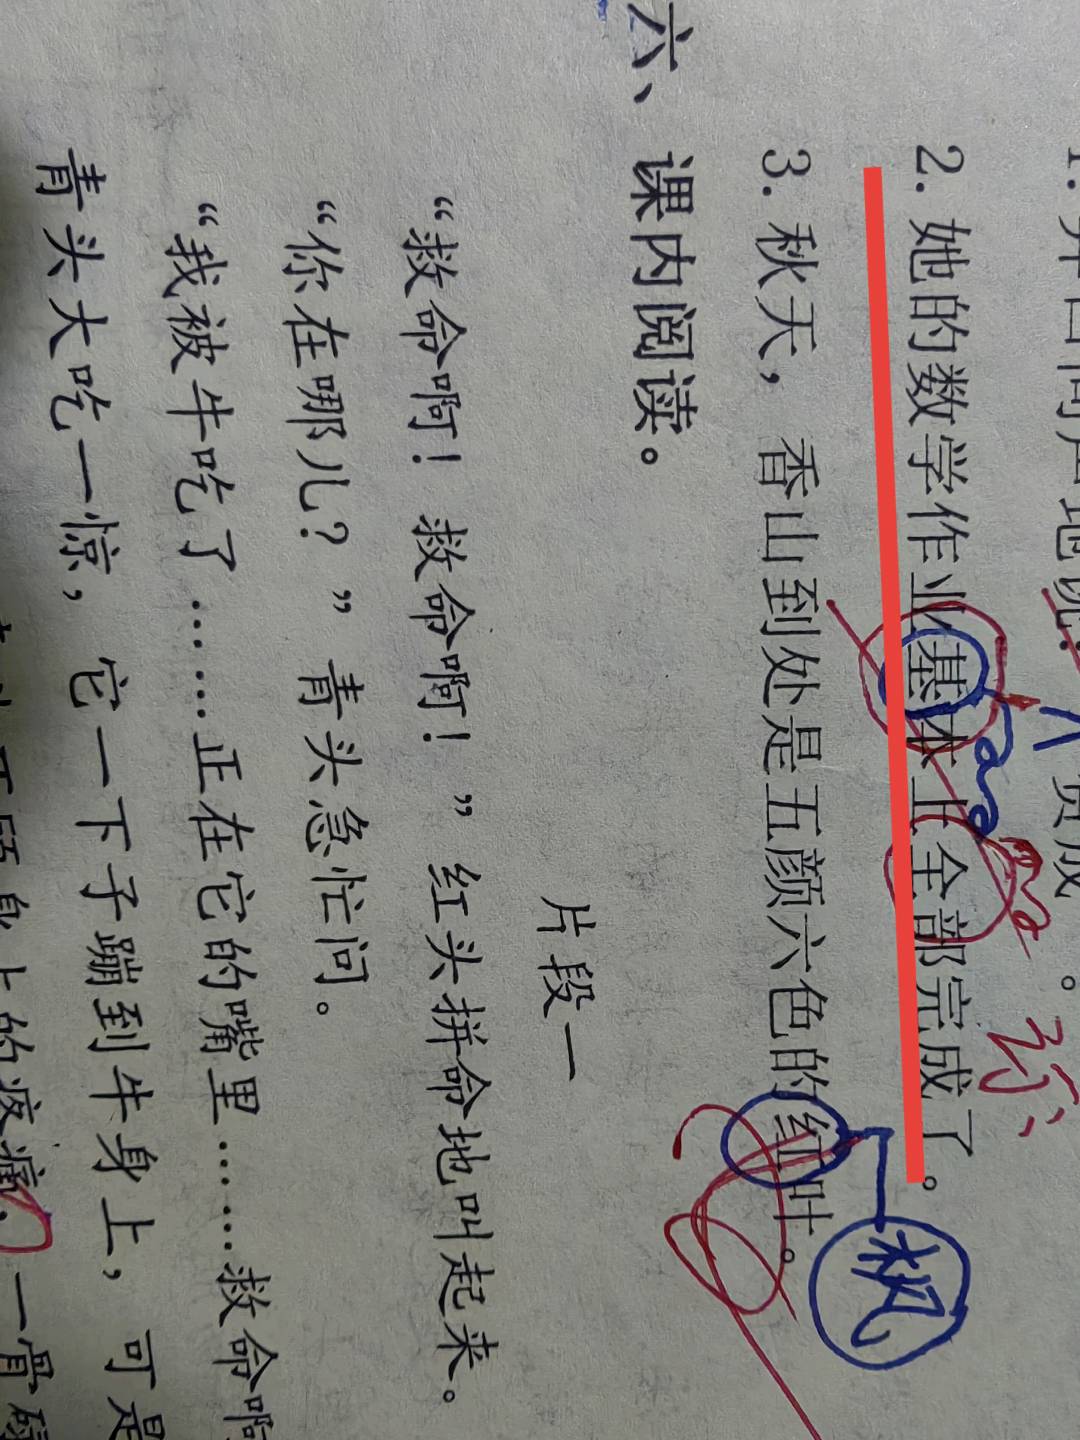 2. 她的数学作业基本上全部完成了。
3. 秋天，香山到处是五颜六色的红叶。
枫
六、课内阅读。
片段一
“救命啊！救命啊！”红头拼命地叫起来。
“你在哪儿？”青头急忙问。
“我被牛吃了……正在它的嘴里……救命啊
青头大吃一惊，它一下子蹦到牛身上，可是
身上的疼痛，一骨碌